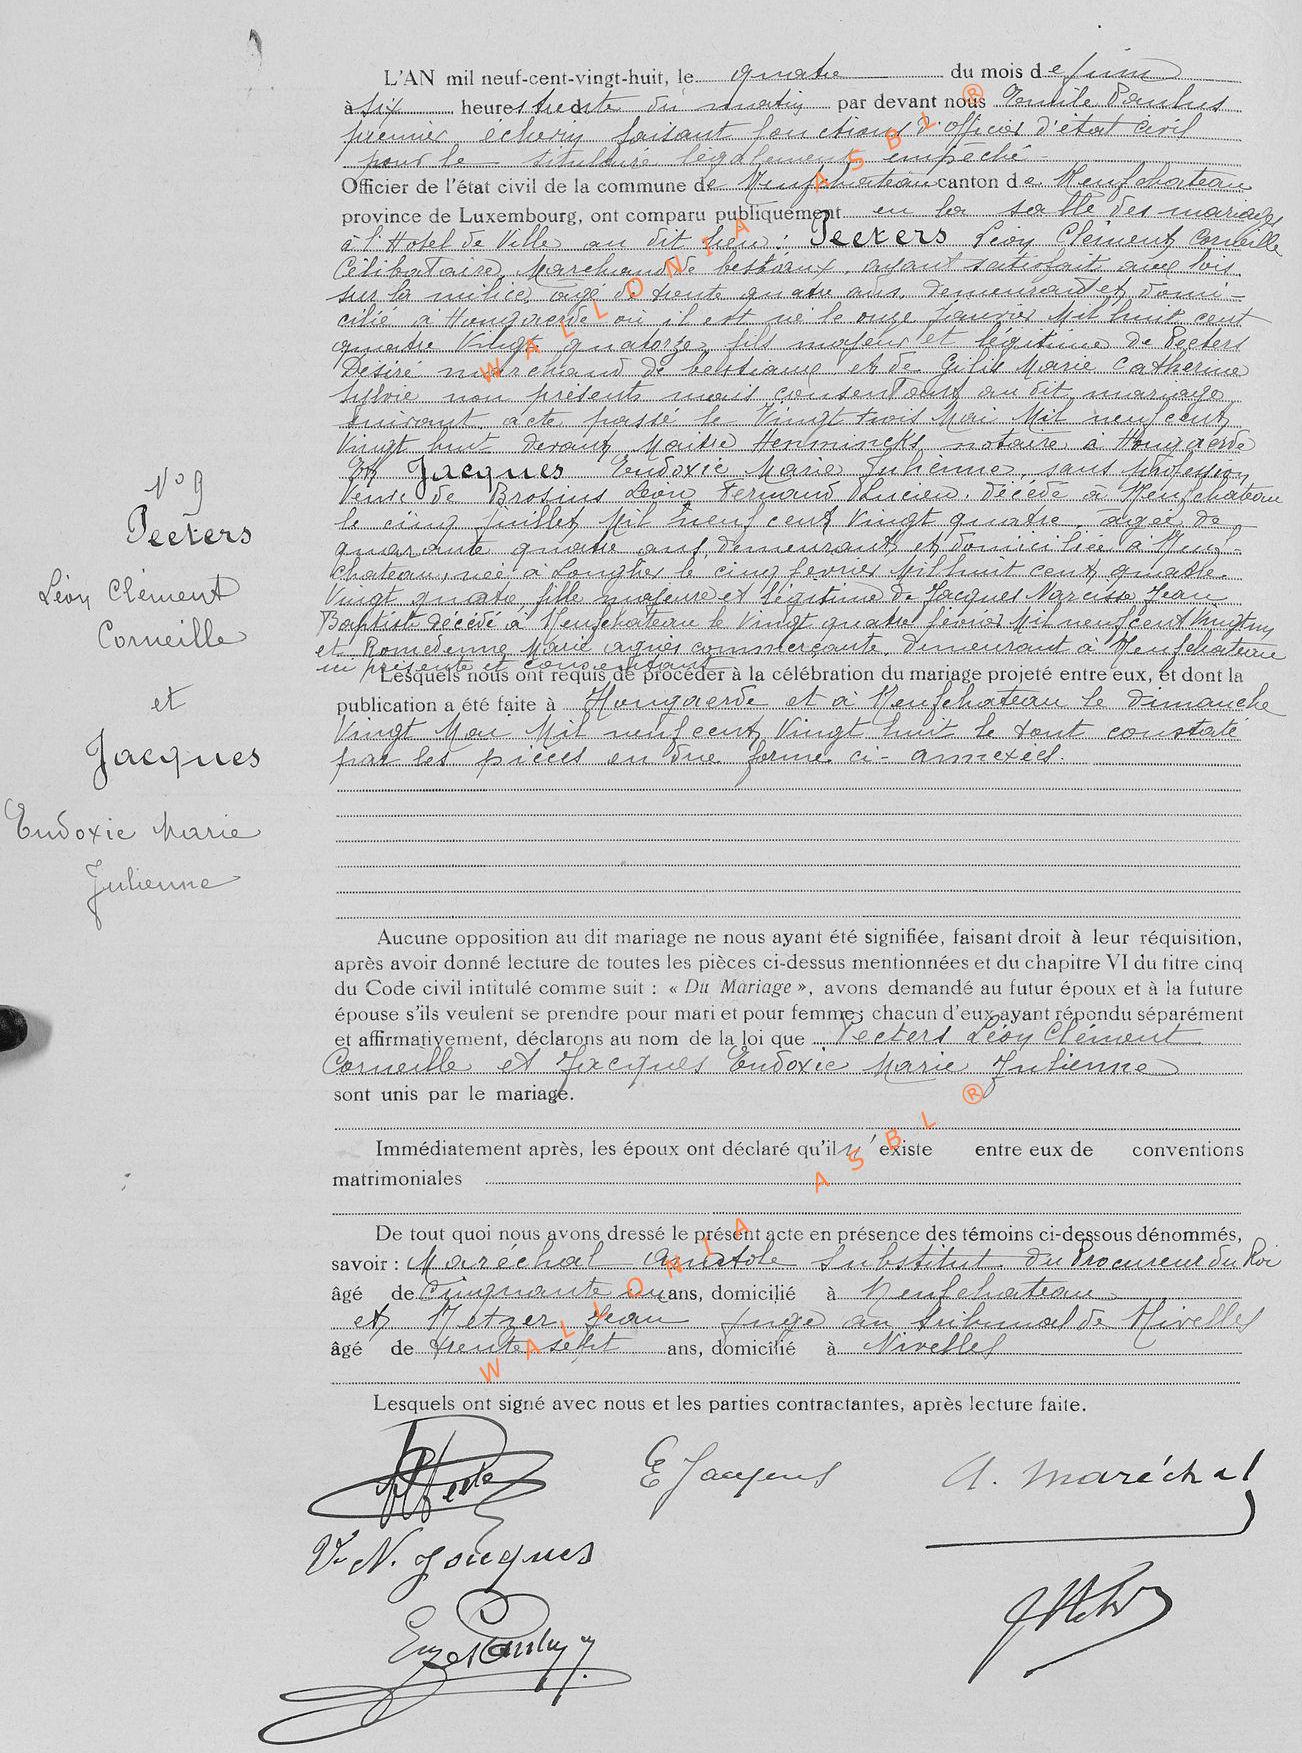 L'AN mil neuf-cent-vingt-huit, le quatre du mois de juin
à six heures trente du matin par devant nous Emile Paulus
premier échevin faisant fonctions d'officier d'état civil
pour le titulaire légalement empêché
Officier de l'état civil de la commune de Neufchateau canton de Neufchateau
province de Luxembourg, ont comparu publiquement en la salle des mariages
à l'Hotel de Ville au dit lieu : Peeters Léon Clément Corneille
Célibataire, Marchand de bestiaux, ayant satisfait aux lois
sur la milice, âgé de trente quatre ans, demeurant et domi-
cilié à Hougaerde où il est né le onze Janvier Mil huit cent
quatre Vingt quatorze, fils majeur et légitime de Peeters
Désiré marchand de bestiaux et de Gilis Marie Catherine
Sylvie non présents mais consentant au dit mariage
suivant acte passé le Vingt trois Mai Mil neuf cent
Vingt huit devant Maitre Hennincks notaire à Hougaerde
Et Jacques Eudoxie Marie Julienne, sans profession,
Veuve de Brosius Léon Fernand Lucien, décédé à Neufchateau
le cinq Juillet Mil neuf cent Vingt quatre, âgée de
quarante quatre ans, demeurant et domiciliée à Neuf-
chateau, née à Longlier le cinq février Mil huit cent quatre
Vingt quatre, fille majeure et légitime de Jacques Narcisse Jean
Baptiste décédé à Neufchateau le Vingt quatre février Mil neuf cent Vingt un
et Romedenne Marie Agnès commerçante, demeurant à Neufchateau
ici présente et consentant
Lesquels nous ont requis de procéder à la célébration du mariage projeté entre eux, et dont la
publication a été faite à Hougaerde et à Neufchateau le dimanche
Vingt Mai Mil neuf cent Vingt huit le tout constaté
par les pièces en due forme ci-annexées.
N° 9
Peeters
Léon Clément
Corneille
et
Jacques
Eudoxie Marie
Julienne
Aucune opposition au dit mariage ne nous ayant été signifiée, faisant droit à leur réquisition,
après avoir donné lecture de toutes les pièces ci-dessus mentionnées et du chapitre VI du titre cinq
du Code civil intitulé comme suit : « Du Mariage », avons demandé au futur époux et à la future
épouse s'ils veulent se prendre pour mari et pour femme; chacun d'eux ayant répondu séparément
et affirmativement, déclarons au nom de la loi que Peeters Léon Clément
Corneille et Jacques Eudoxie Marie Julienne
sont unis par le mariage.
Immédiatement après, les époux ont déclaré qu'il n'existe entre eux de conventions
matrimoniales
De tout quoi nous avons dressé le présent acte en présence des témoins ci-dessous dénommés,
savoir : Maréchal Anatole Substitut du Procureur du Roi
âgé de Cinquante un ans, domicilié à Neufchateau
et Metzer Jean Juge au tribunal de Nivelles
âgé de trente sept ans, domicilié à Nivelles
Lesquels ont signé avec nous et les parties contractantes, après lecture faite.
E Jacques
A. Maréchal
Ve N. Jacques
WALLONIA ASBL ®
WALLONIA ASBL ®